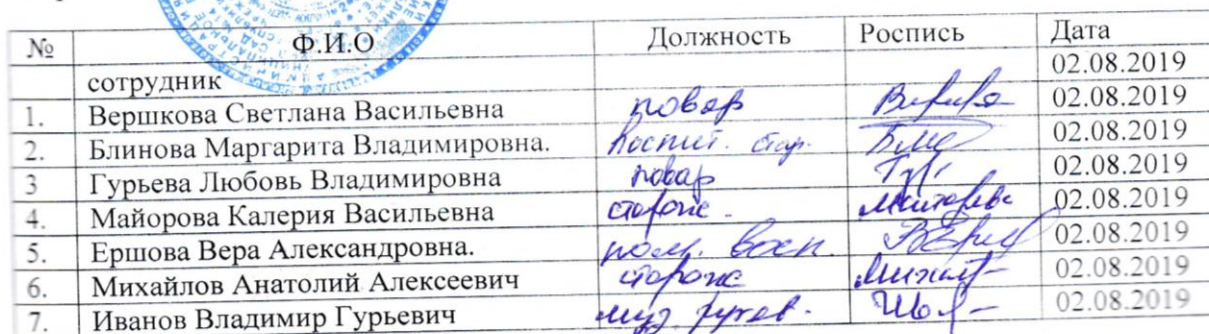 № Ф.И.О Должность Роспись Дата
сотрудник 02.08.2019
1. Вершкова Светлана Васильевна повар 02.08.2019
2. Блинова Маргарита Владимировна. 02.08.2019
3 Гурьева Любовь Владимировна повар 02.08.2019
4. Майорова Калерия Васильевна сторож 02.08.2019
5. Ершова Вера Александровна. пом. восп. 02.08.2019
6. Михайлов Анатолий Алексеевич сторож 02.08.2019
7. Иванов Владимир Гурьевич муз. руков. 02.08.2019